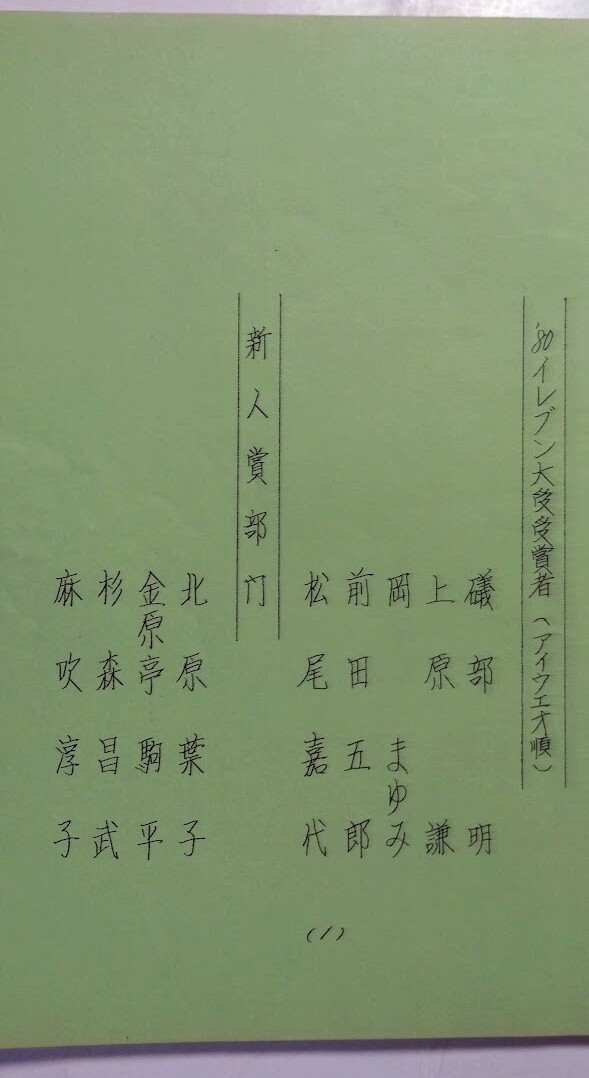 '80イレブン大受受賞者(アイウエオ順)
礒部明
上原謙
岡まゆみ
前田五郎
松尾嘉代
新人賞部门
北原葉子
金原亭駒平
杉森昌武
麻吹淳子
(1)